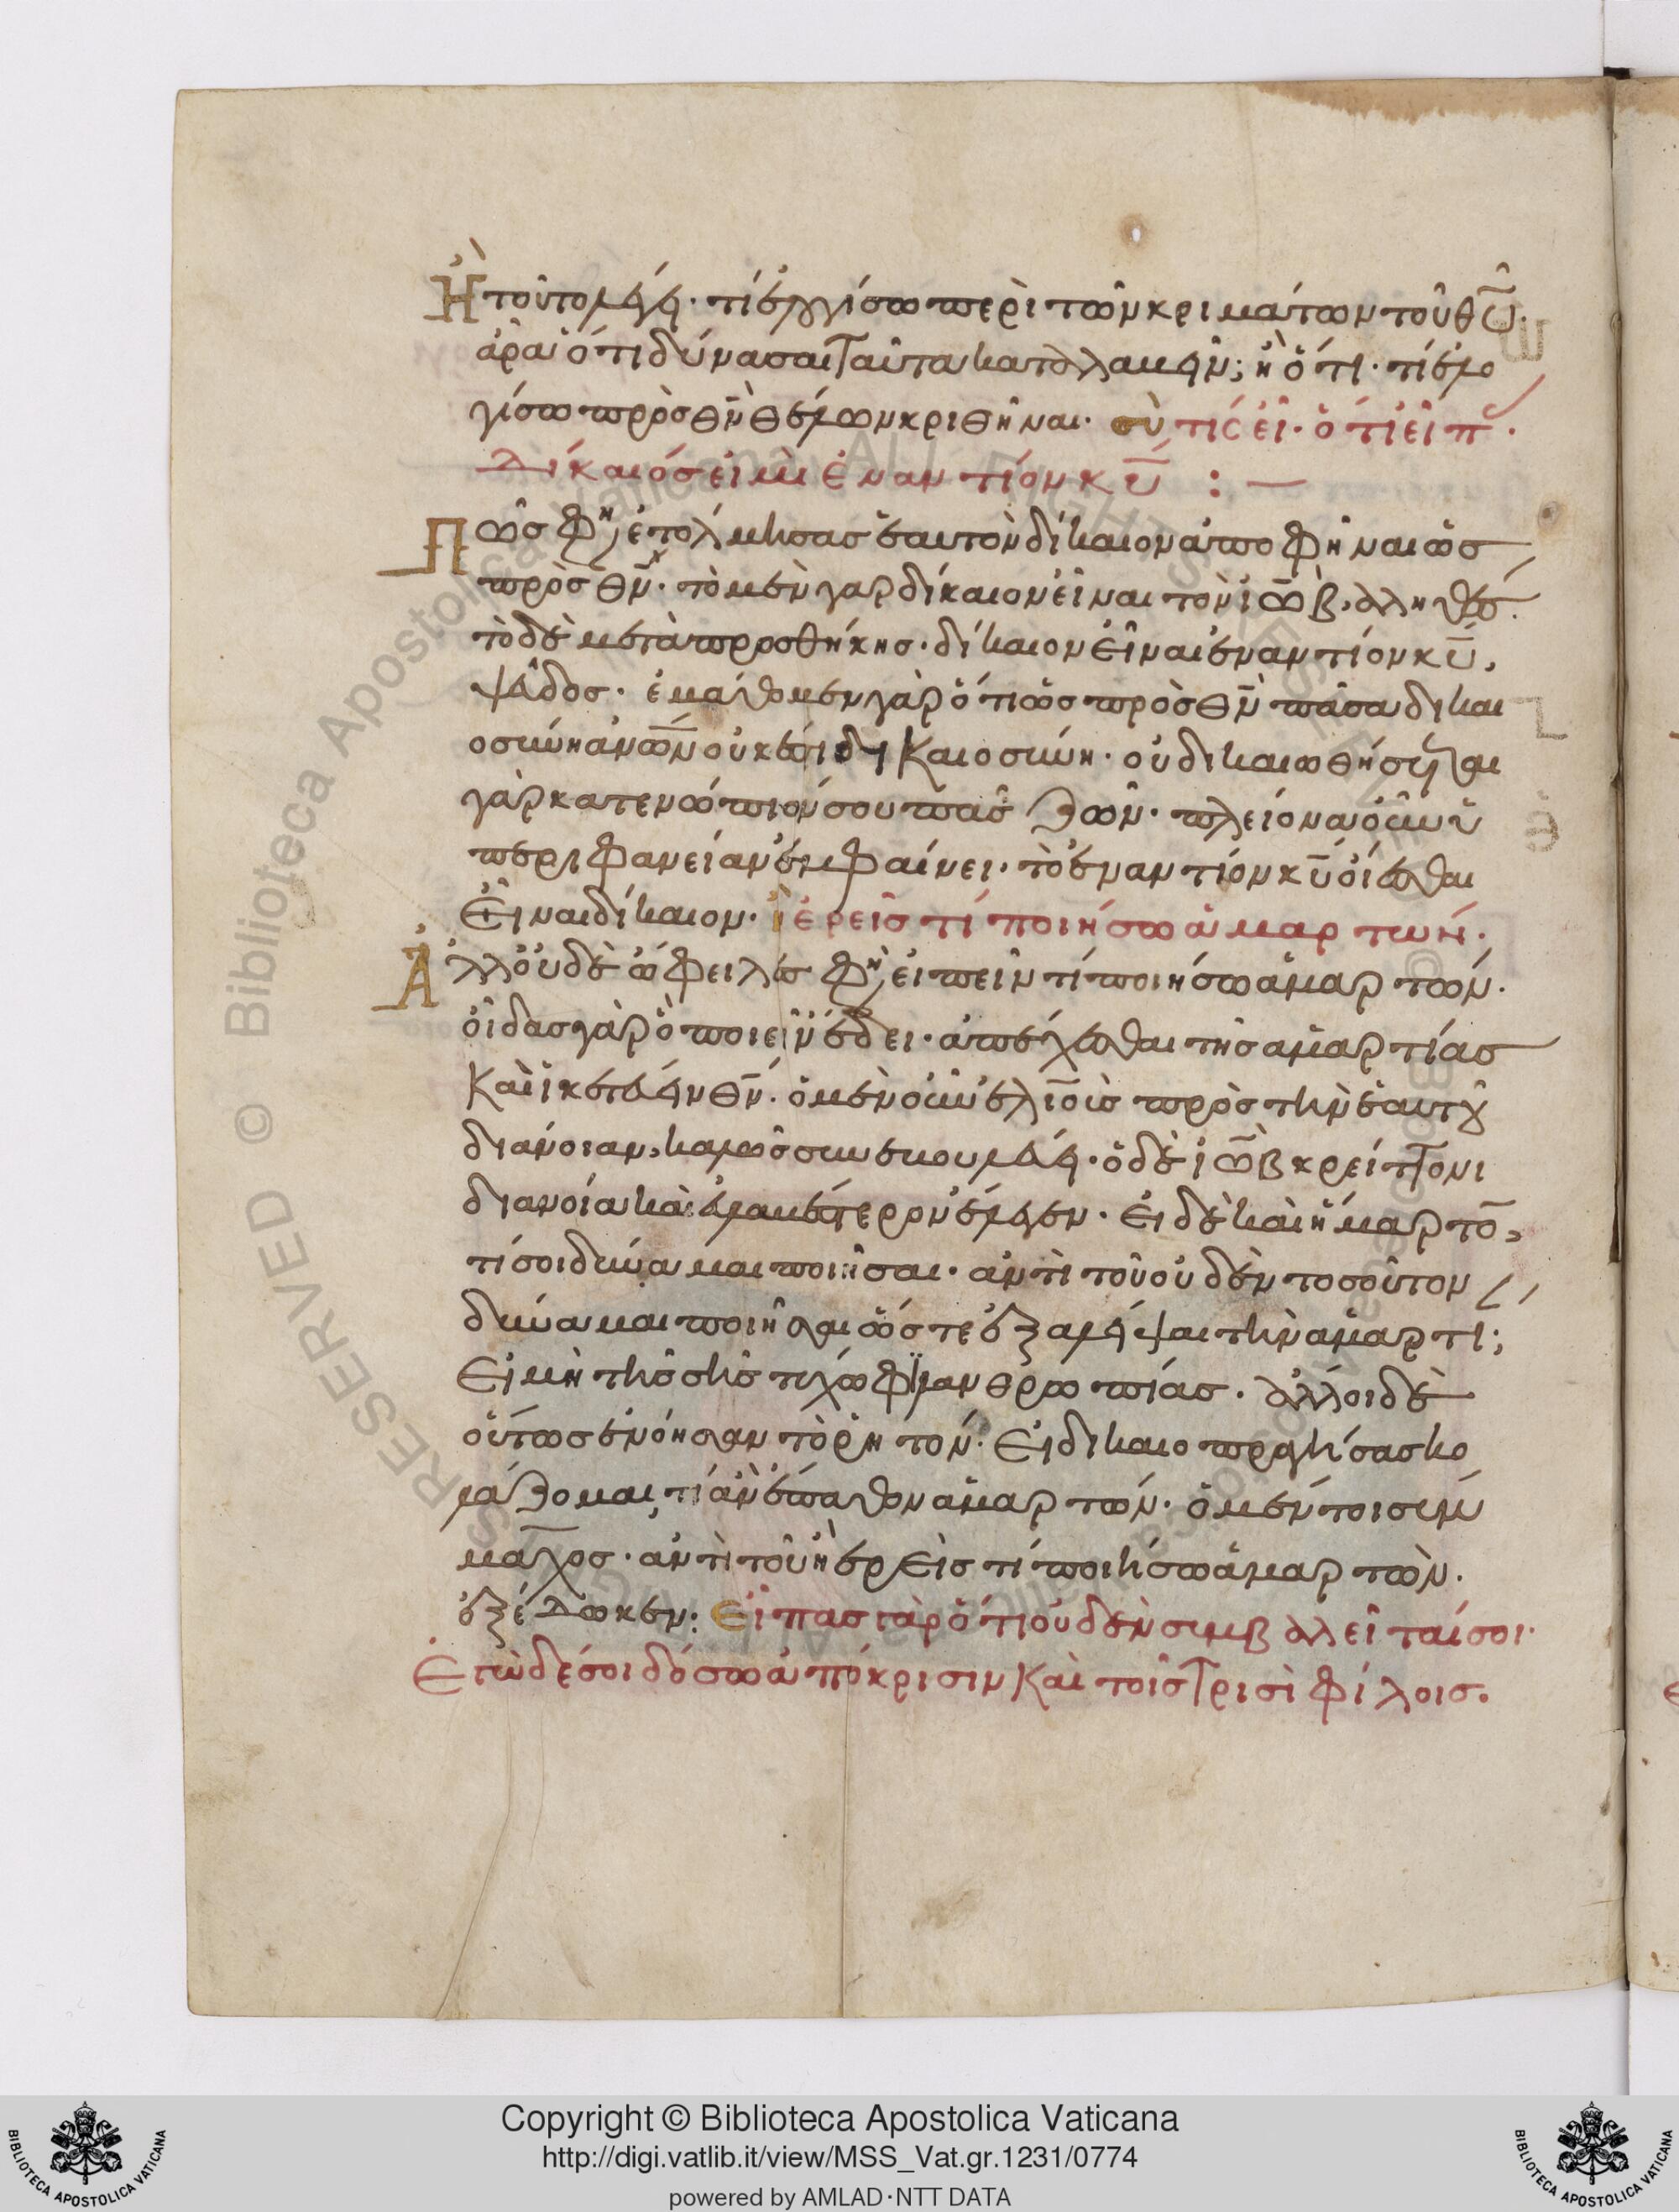 Ἢ τοῦτο λέγει· τί ἐλογίσω περὶ τῶν κριμάτων τοῦ θυ̅·
ἆρα ὅτι δύνασαι ταῦτα καταλαμεῖν; ἢ ὅτι· τί ἐλο
γίσω πρὸς θν̅ θέλων κριθῆναι· σὺ τίς εἶ· ὅτι εἶπ·
Δίκαιός εἰμι ἐναντίον κυ̅ :—
Πῶς φη ἐτόλμησας ἑαυτὸν δίκαιον ἀποφῆναι ὡς
πρὸς θν̅· τὸ μὲν γὰρ δίκαιον εἶναι τὸν ἰὼβ, ἀληθές·
τὸ δὲ μετὰ προσθήκης· δίκαιον εἶναι ἐναντίον κυ̅,
ψεῦδος· ἐμάθομεν γὰρ ὅτι ὡς πρὸς θν̅ πᾶσα δικαι
οσύνη ἀνω̅ν οὐκ ἔστι δικαιοσύνη· οὐ δικαιωθήσεται
γὰρ κατενώπιόν σου πᾶς ζῶν· πλείονα οὖν
περιφάνειαν ἐμφαίνει· τὸ ἐναντίον κυ̅ οἴεσθαι
εἶναι δίκαιον· ἢ ἐρεῖς τί ποιήσω ἁμαρτών·
Ἀλλ' οὐδὲ ὤφειλες φη εἰπεῖν τί ποιήσω ἁμαρτών·
οἶδας γὰρ ὃ ποιεῖν ἔδει· ἀπέχεσθαι τῆς ἁμαρτίας
καὶ ἱκετεύειν θν̅· ὁ μὲν οὖν ἐλιοῦς πρὸς τὴν ἑαυτοῦ
διάνοιαν, καλῶς συνεῖναι λέγει· ὁ δὲ ἰὼβ κρείττονι
διανοία καὶ ἔλεγεν· εἰ δὲ καὶ ἥμαρτο̅,
τί σοι δύναμαι ποιῆσαι· ἀντὶ τοῦ οὐδὲν τοσοῦτον
δύναμαι ποιῆσαι ὥστε ἐξαλεῖψαι τὴν ἁμαρτι;
εἰ μὴ τῆς σῆς τύχω φιλανθρωπίας· ἄλλοι δὲ
οὕτως ἐνόησαν τὸ ῥητόν· εἰ δικαιοπραγήσας κο
λάζομαι, τί ἂν ἔπαθον ἁμαρτών· ὁ μέντοι σύμ
μαχος· ἀντὶ τοῦ ἢ ἐρεῖς τί ποιήσω ἁμαρτών·
ἐξέδωκεν: εἶπας γὰρ ὅτι οὐδὲν συμβαλεῖται σοι·
ἐγὼ δέ σοι δώσω ἀπόκρισιν καὶ τοῖς τρισὶ φίλοις.
RESERVED © Biblioteca Apostolica Vaticana
Copyright © Biblioteca Apostolica Vaticana
http://digi.vatlib.it/view/MSS_Vat.gr.1231/0774
powered by AMLAD·NTT DATA
BIBLIOTECA APOSTOLICA VATICANA
BIBLIOTECA APOSTOLICA VATICANA